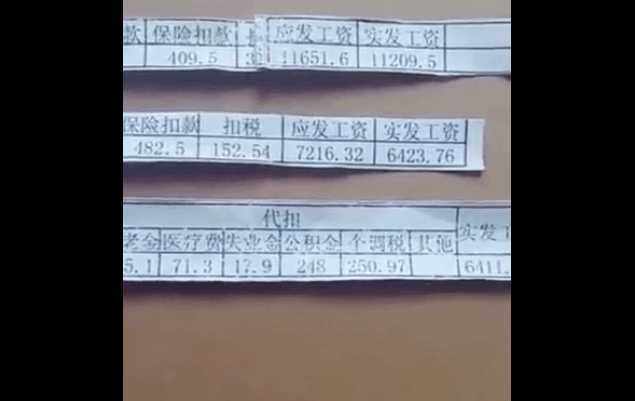 款 保险扣款 应发工资 实发工资
409.5 11651.6 11209.5
保险扣款 扣税 应发工资 实发工资
482.5 152.54 7216.32 6423.76
代扣
老金 医疗费 失业金 公积金 个调税 其他 实发工
5.1 71.3 17.9 248 250.97 6411.